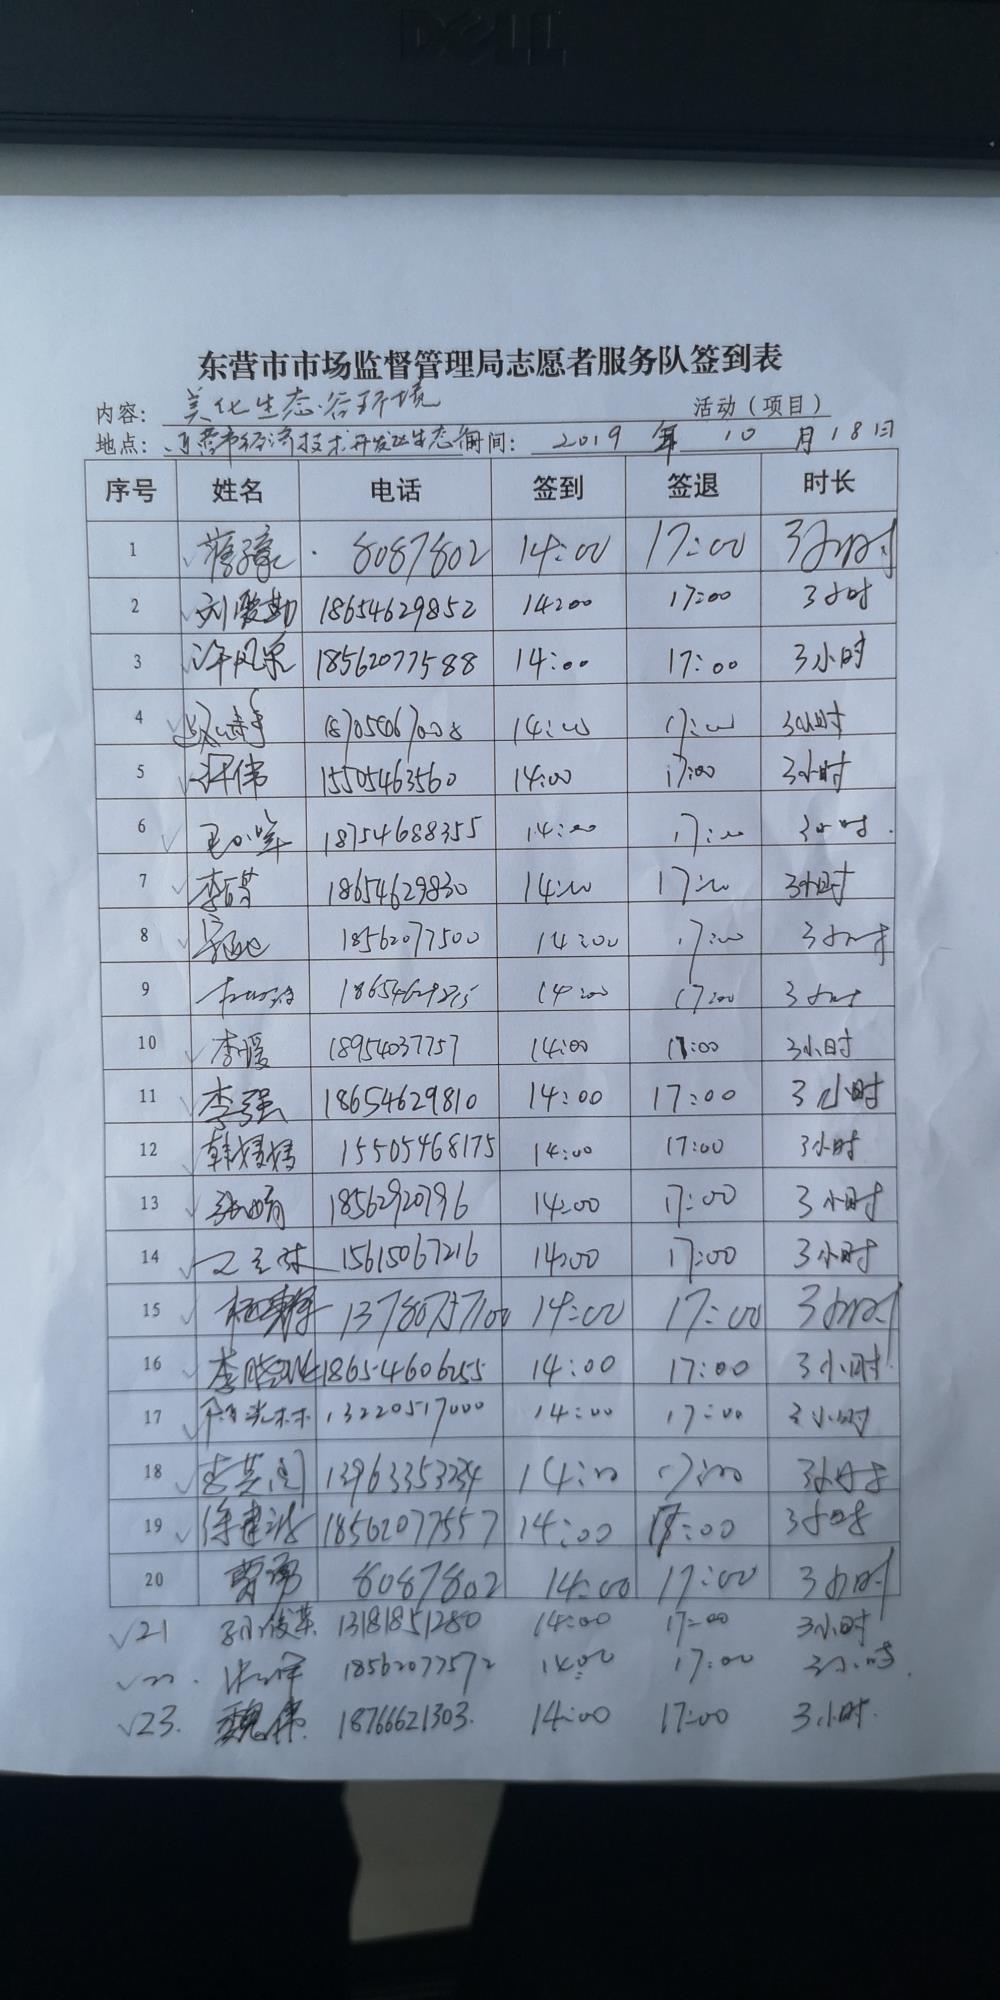 DELL
东营市市场监督管理局志愿者服务队签到表
内容: 美化生态谷环境 活动(项目)
地点: 东营市经济技术开发区生态谷 时间: 2019 年 10 月 18日
序号 姓名 电话 签到 签退 时长
1 8087802 14:00 17:00 3小时
2 刘爱勤 18654629852 14:00 17:00 3小时
3 许凤泉 18562077588 14:00 17:00 3小时
4 14:00 17:00 3小时
5 许伟 15505463560 14:00 17:00 3小时
6 18754688355 14:00 17:00 3小时
7 18654629830 14:00 17:00 3小时
8 18562077500 14:00 17:00 3小时
9 14:00 17:00 3小时
10 李媛 18954037757 14:00 17:00 3小时
11 李强 18654629810 14:00 17:00 3小时
12 韩嫚嫚 15505468175 14:00 17:00 3小时
13 18562920796 14:00 17:00 3小时
14 15615067216 14:00 17:00 3小时
15 14:00 17:00 3小时
16 18654606255 14:00 17:00 3小时
17 13220517000 14:00 17:00 3小时
18 13963353234 14:00 17:00 3小时
19 徐建波 18562077557 14:00 17:00 3小时
20 曹勇 8087802 14:00 17:00 3小时
21 孙俊英 13181851280 14:00 17:00 3小时
22. 18562077572 14:00 17:00 3小时.
23. 魏伟 18766621303. 14:00 17:00 3小时.